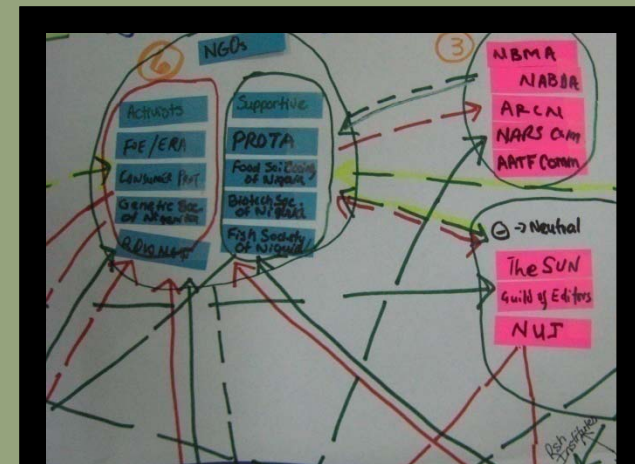 6
NGOs
Activists
FOE/ERA
Consumer Prot
Genetic Soc.
of Nigeria
Supportive
PROTA
Food Sci
of Nigeria
Biotech Soc.
of Nigeria
Fish Society
of Nigeria
3
NBMA
NABDA
ARCN
NARS Comm
AATF Comm
⊖ -> Neutral
The SUN
Guild of Editors
NUJ
Rsh
Institutes